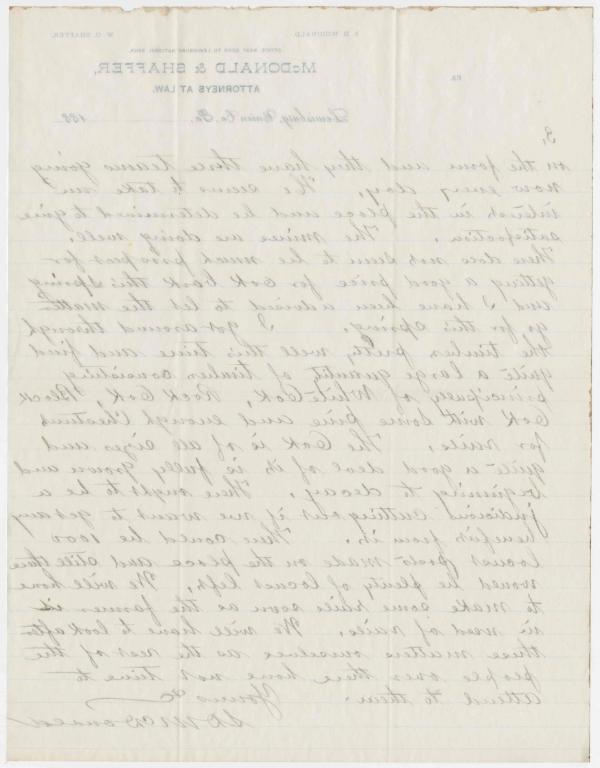 W. O. SHAFFER. A. D. McDONALD.
OFFICE, NEXT DOOR TO LEWISBURG NATIONAL BANK.
McDONALD & SHAFFER,
ATTORNEYS AT LAW.
Lewisburg, Union Co. Pa. 188
3,
on the farm and they have three teams going
now every day. He seems to take an
interest in the place and be determined to give
satisfaction. The mines are doing well.
There does not seem to be much prospect for
getting a good price for oak bark this spring
and I have been advised to let the matter
go for this spring. I got around through
the timber pretty well this time and find
quite a large quantity of timber consisting
principally of White Oak, Rock Oak, Black
Oak with some pine and enough Chestnut
for rails. The Oak is of all sizes and
quite a good deal of it is fully grown and
beginning to decay. There ought to be a
judicious cutting out if we want to get any
benefit from it. There could be 1000
locust posts made on the place and still there
would be plenty of locust left. We will have
to make some rails soon as the farmer is
in need of rails. We will have to look after
these matters ourselves as the rest of the
people over there have not time to
attend to them. Yours &c
McDonald